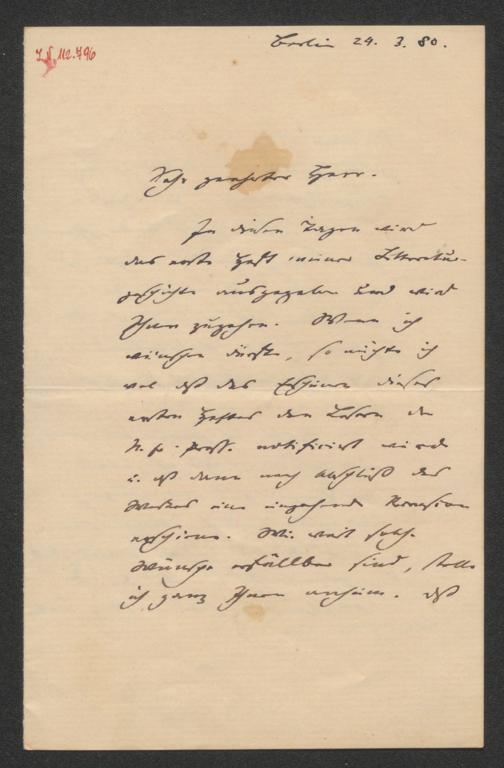 I.N. 112.796
Berlin 24. 3. 80.
Sehr geehrter Herr.
In diesen Tagen wird
das erste Heft meiner Litteratur-
geschichte ausgegeben und wird
Ihnen zugehen. Wenn ich
wünschen dürfte, so möchte ich
wol daß das Erscheinen dieses
ersten Heftes den Lesern der
N. fr. Presse notificirt würde
u. daß dann nach Abschluß des
Werkes eine eingehende Recension
erschiene. Wie weit solche
Wünsche erfüllbar sind, stelle
ich ganz Ihnen anheim. Daß